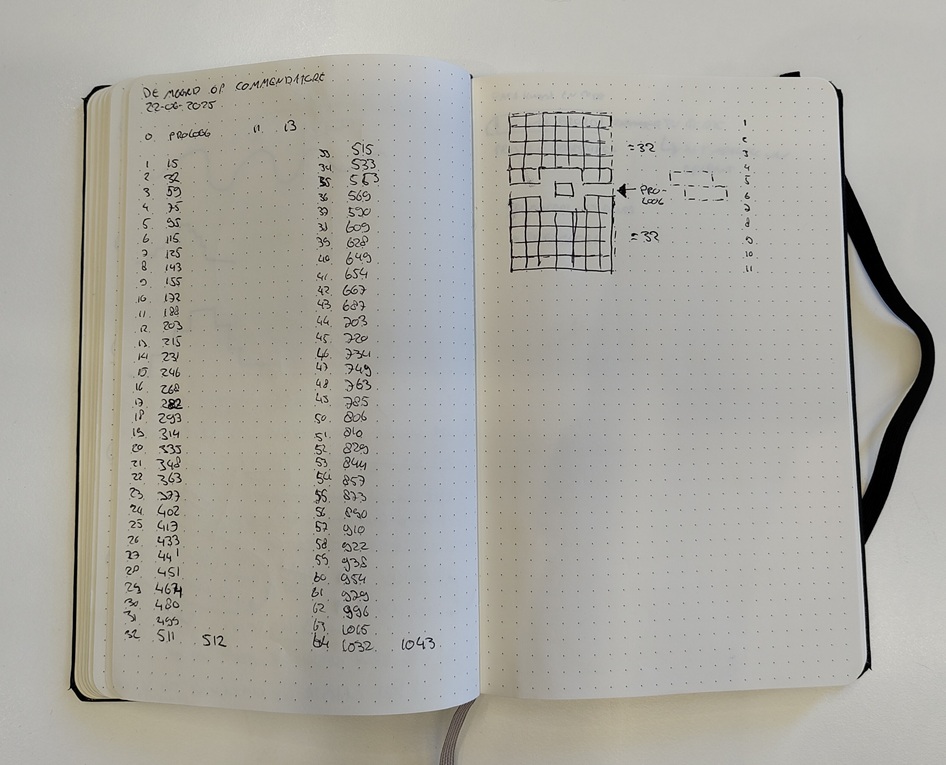 DE MOORD OP COMMENDATORE
22-06-2025
0 PROLOOG 11 13
1 15
2 32
3 59
4 75
5 95
6. 115
7. 125
8 143
9 155
10. 172
11. 188
12. 203
13. 215
14 231
15. 246
16 268
17 282
18 293
19 314
20 335
21 348
22 363
23 377
24. 402
25 417
26 433
27 441
28 451
29 467
30 480
31 499
32 511 512
33. 515
34 533
35 553
36 569
37 590
38 609
39 628
40 649
41. 654
42. 667
43. 687
44. 703
45. 720
46. 734
47. 749
48. 763
49. 785
50. 806
51. 810
52. 829
53. 844
54. 857
55. 873
56 890
57. 910
58 922
59. 938
60. 954
61. 979
62 996
63 1015
64 1032 1043
=32
PRO-
LOOG
=32
1
2
3
4
5
6
7
8
9
10
11